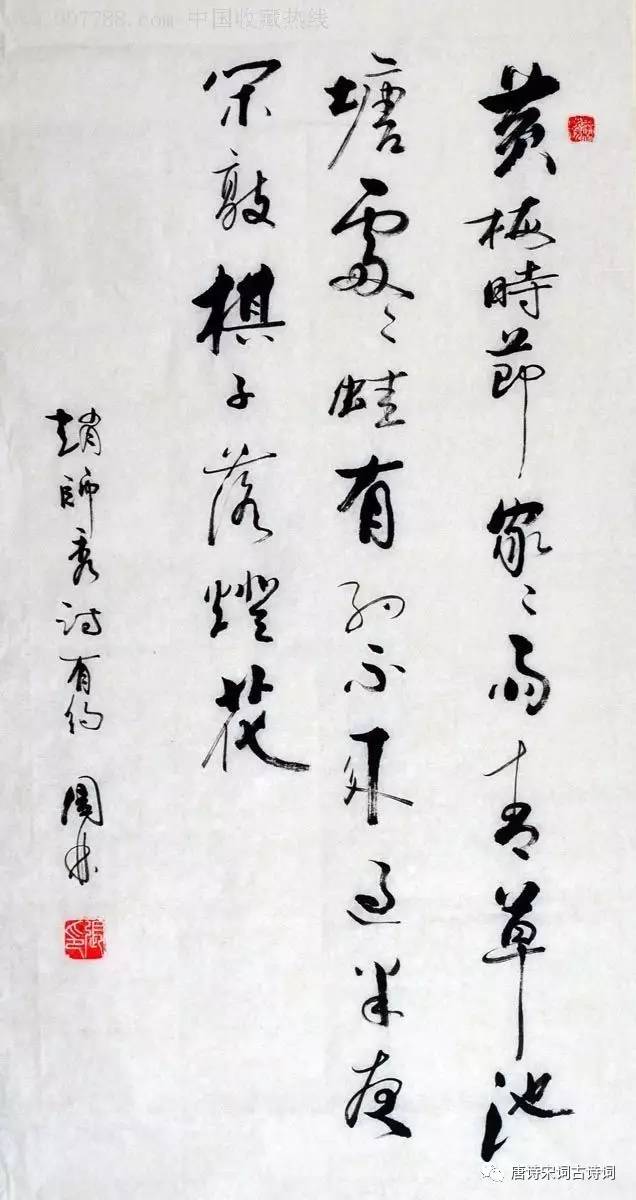 黄梅時節家〻雨青草池
塘處〻蛙有約不来過半夜
閑敲棋子落燈花
趙師秀詩有約 國林
007788.com 中国收藏热线
唐诗宋词古诗词